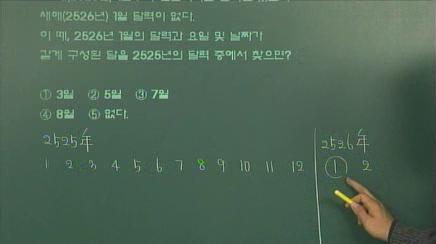 새해(2526년) 1월 달력이 없다.
이 때, 2526년 1월의 달력과 요일 및 날짜가
같게 구성된 달을 2525년의 달력 중에서 찾으면?
① 3월 ② 5월 ③ 7월
④ 8월 ⑤ 없다.
2525年 2526年
1 2 3 4 5 6 7 8 9 10 11 12 1 2